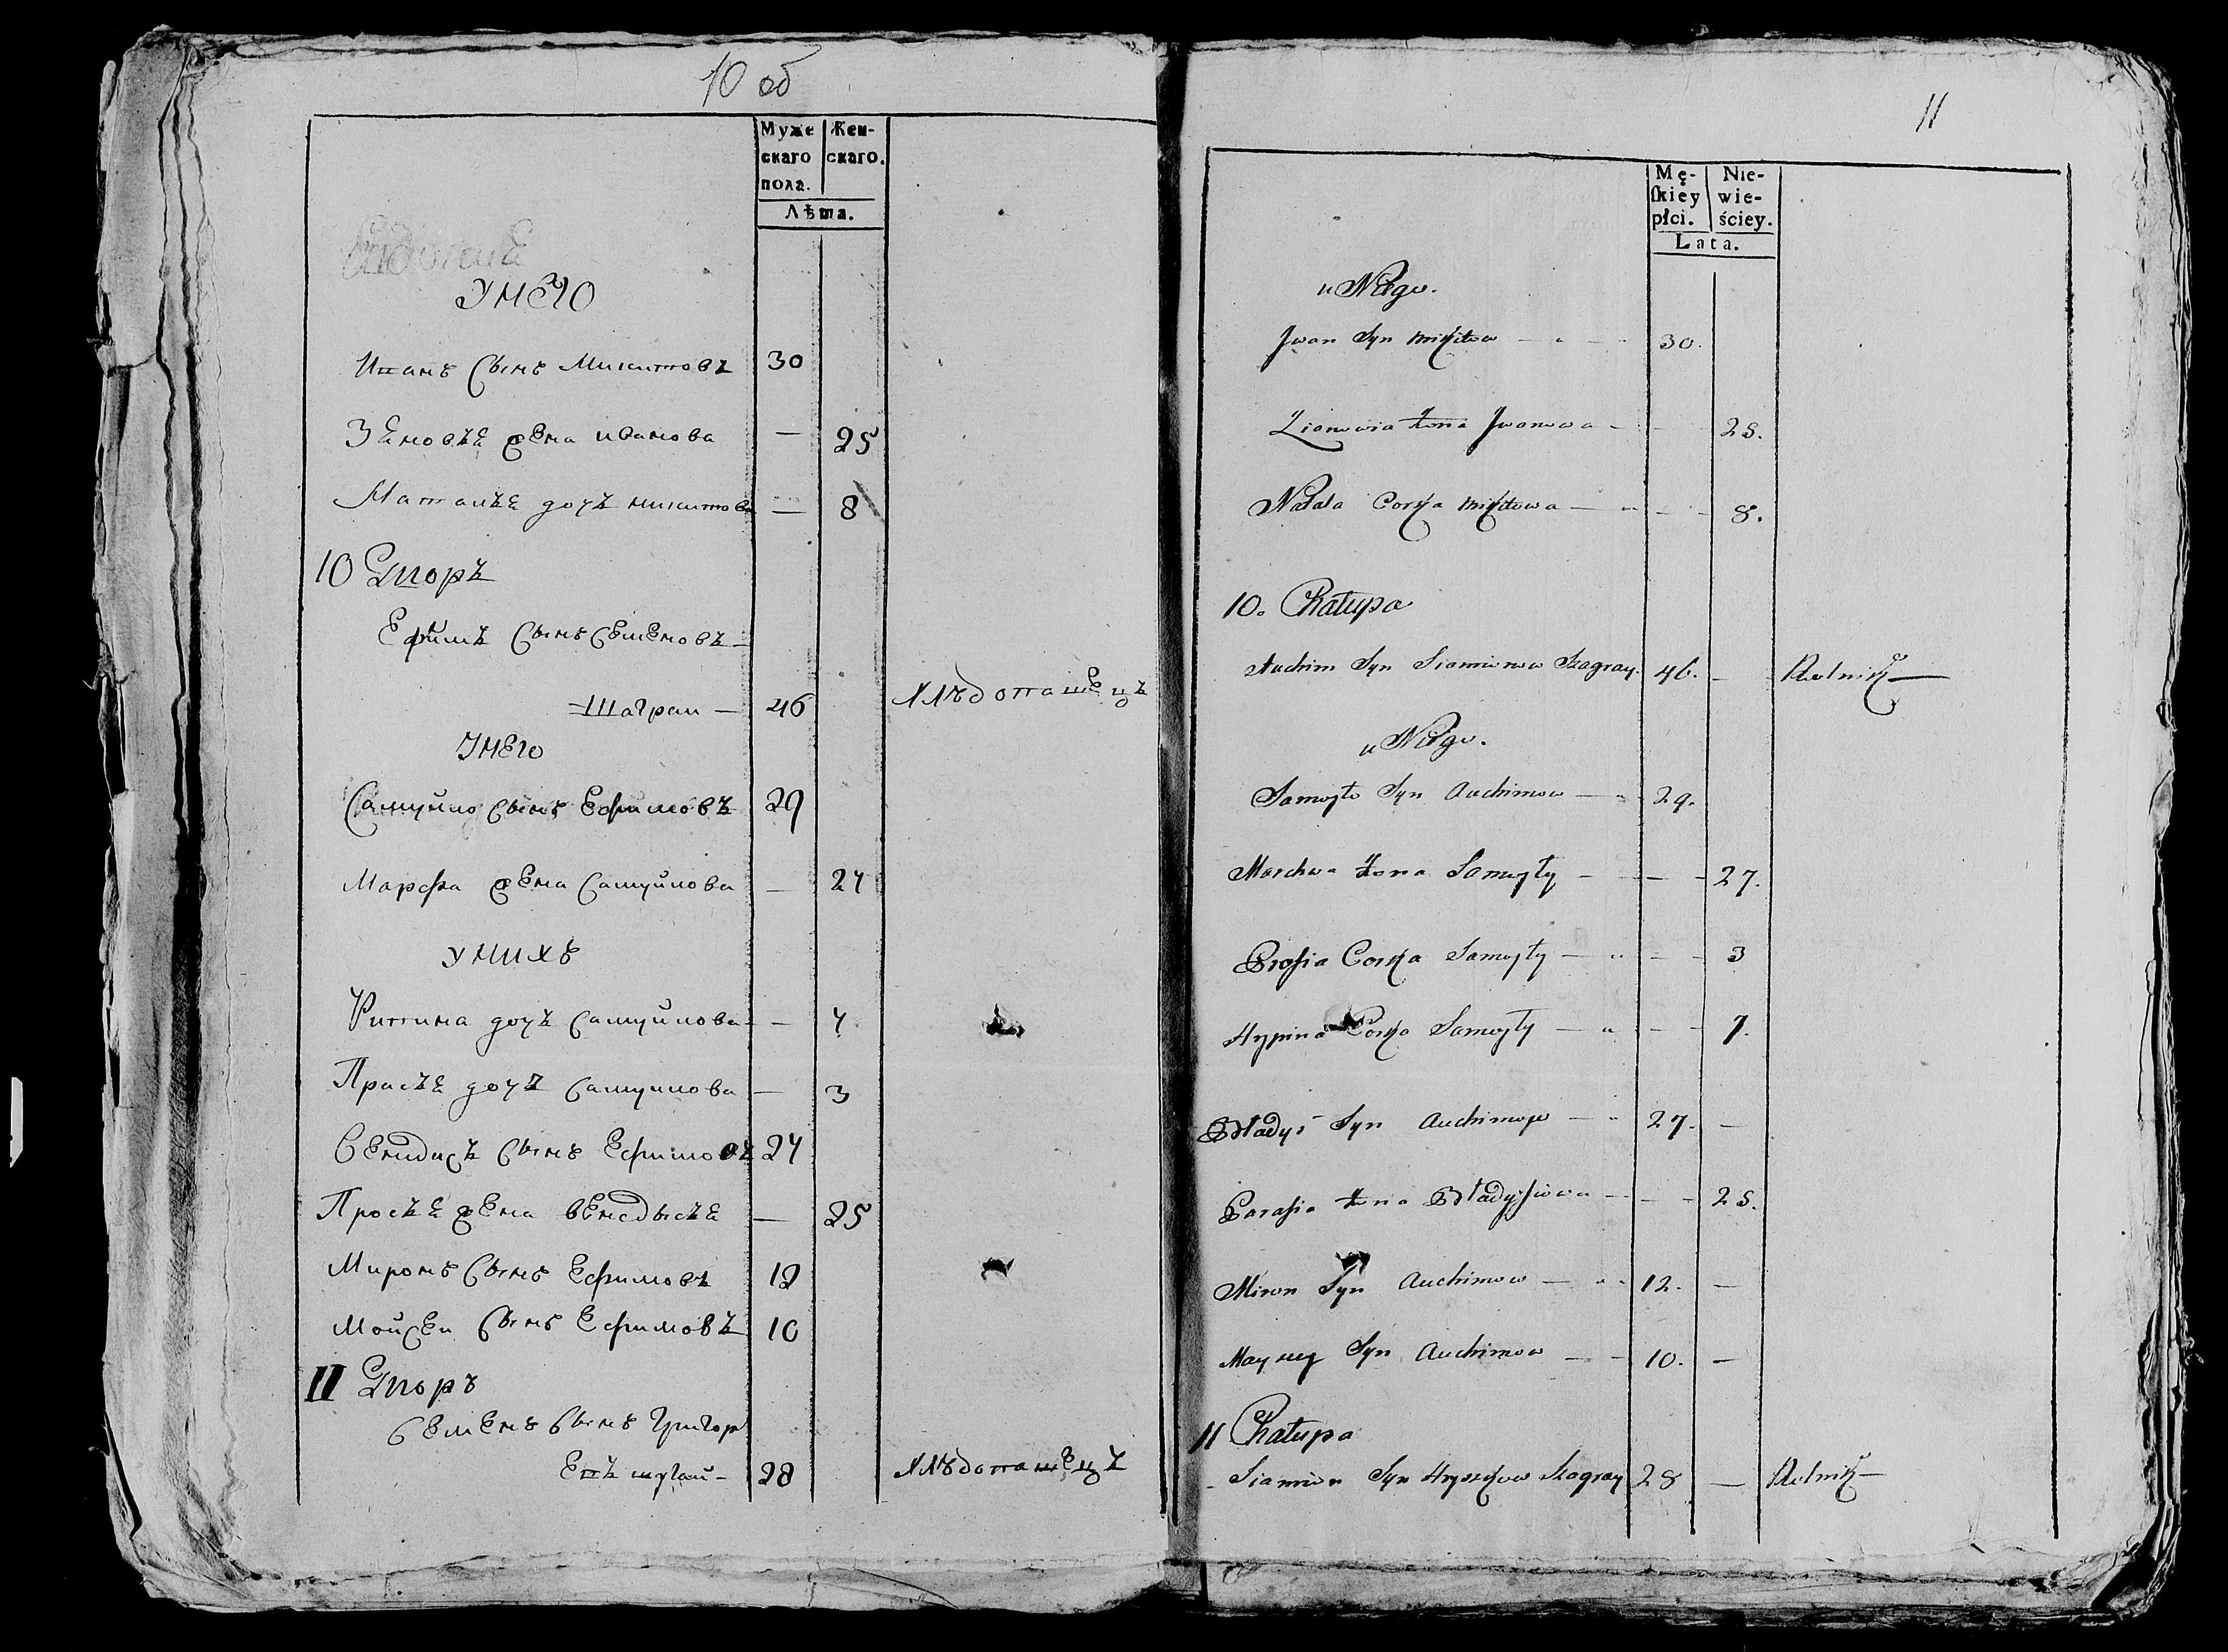 10 об
Муже
скаго
пола.
Жен-
скаго.
Лѣта.
У НЕГО
Иванъ Сынъ Микитовъ 30
Зеновѣя жена иванова — 25
Наталѣя дочъ микитова — 8
10 Дворъ
Ефимъ Сынъ Семеновъ —
Шаграй — 46 хлѣбопашецъ
У НЕГО
Самуйло Сынъ Ефимовъ 29
Марфа жена Самуйлова — 27
У НИХЪ
дочъ Самуйлова — 7
Прасѣя дочъ Самуйлова — 3
Сынъ Ефимовъ 27
Просѣя жена — 25
Миронъ Сынъ Ефимовъ 12
Мойсей Сынъ Ефимовъ 10
11 Дворъ
Семенъ Сынъ Григор
евъ 28 хлѣбопашецъ
11
Mę-
skiey
płci.
Nie-
wie-
ściey.
Lata.
u Niego.
Jwan Syn Mikitow — 30.
Zianowia żona Jwanowa — 25.
Natala Corka Mikitowa — 8.
10. Chałupa
Auchim Syn Siamionow Szagray. 46. — Rolnik —
u Niego.
Samoyło Syn Auchimow — 29.
Marchwa żona Samoyły — 27.
Prosia Corka Samoyły — 3
Hypina Corka Samoyły — 7.
Bładyś Syn Auchimow — 27. —
Parasia żona Bładysiowa — 25.
Miron Syn Auchimow — 12. —
Maysiey Syn Auchimow — 10. —
11 Chałupa
Siamion Syn Hryszkow Szagray 28 — Rolnik —